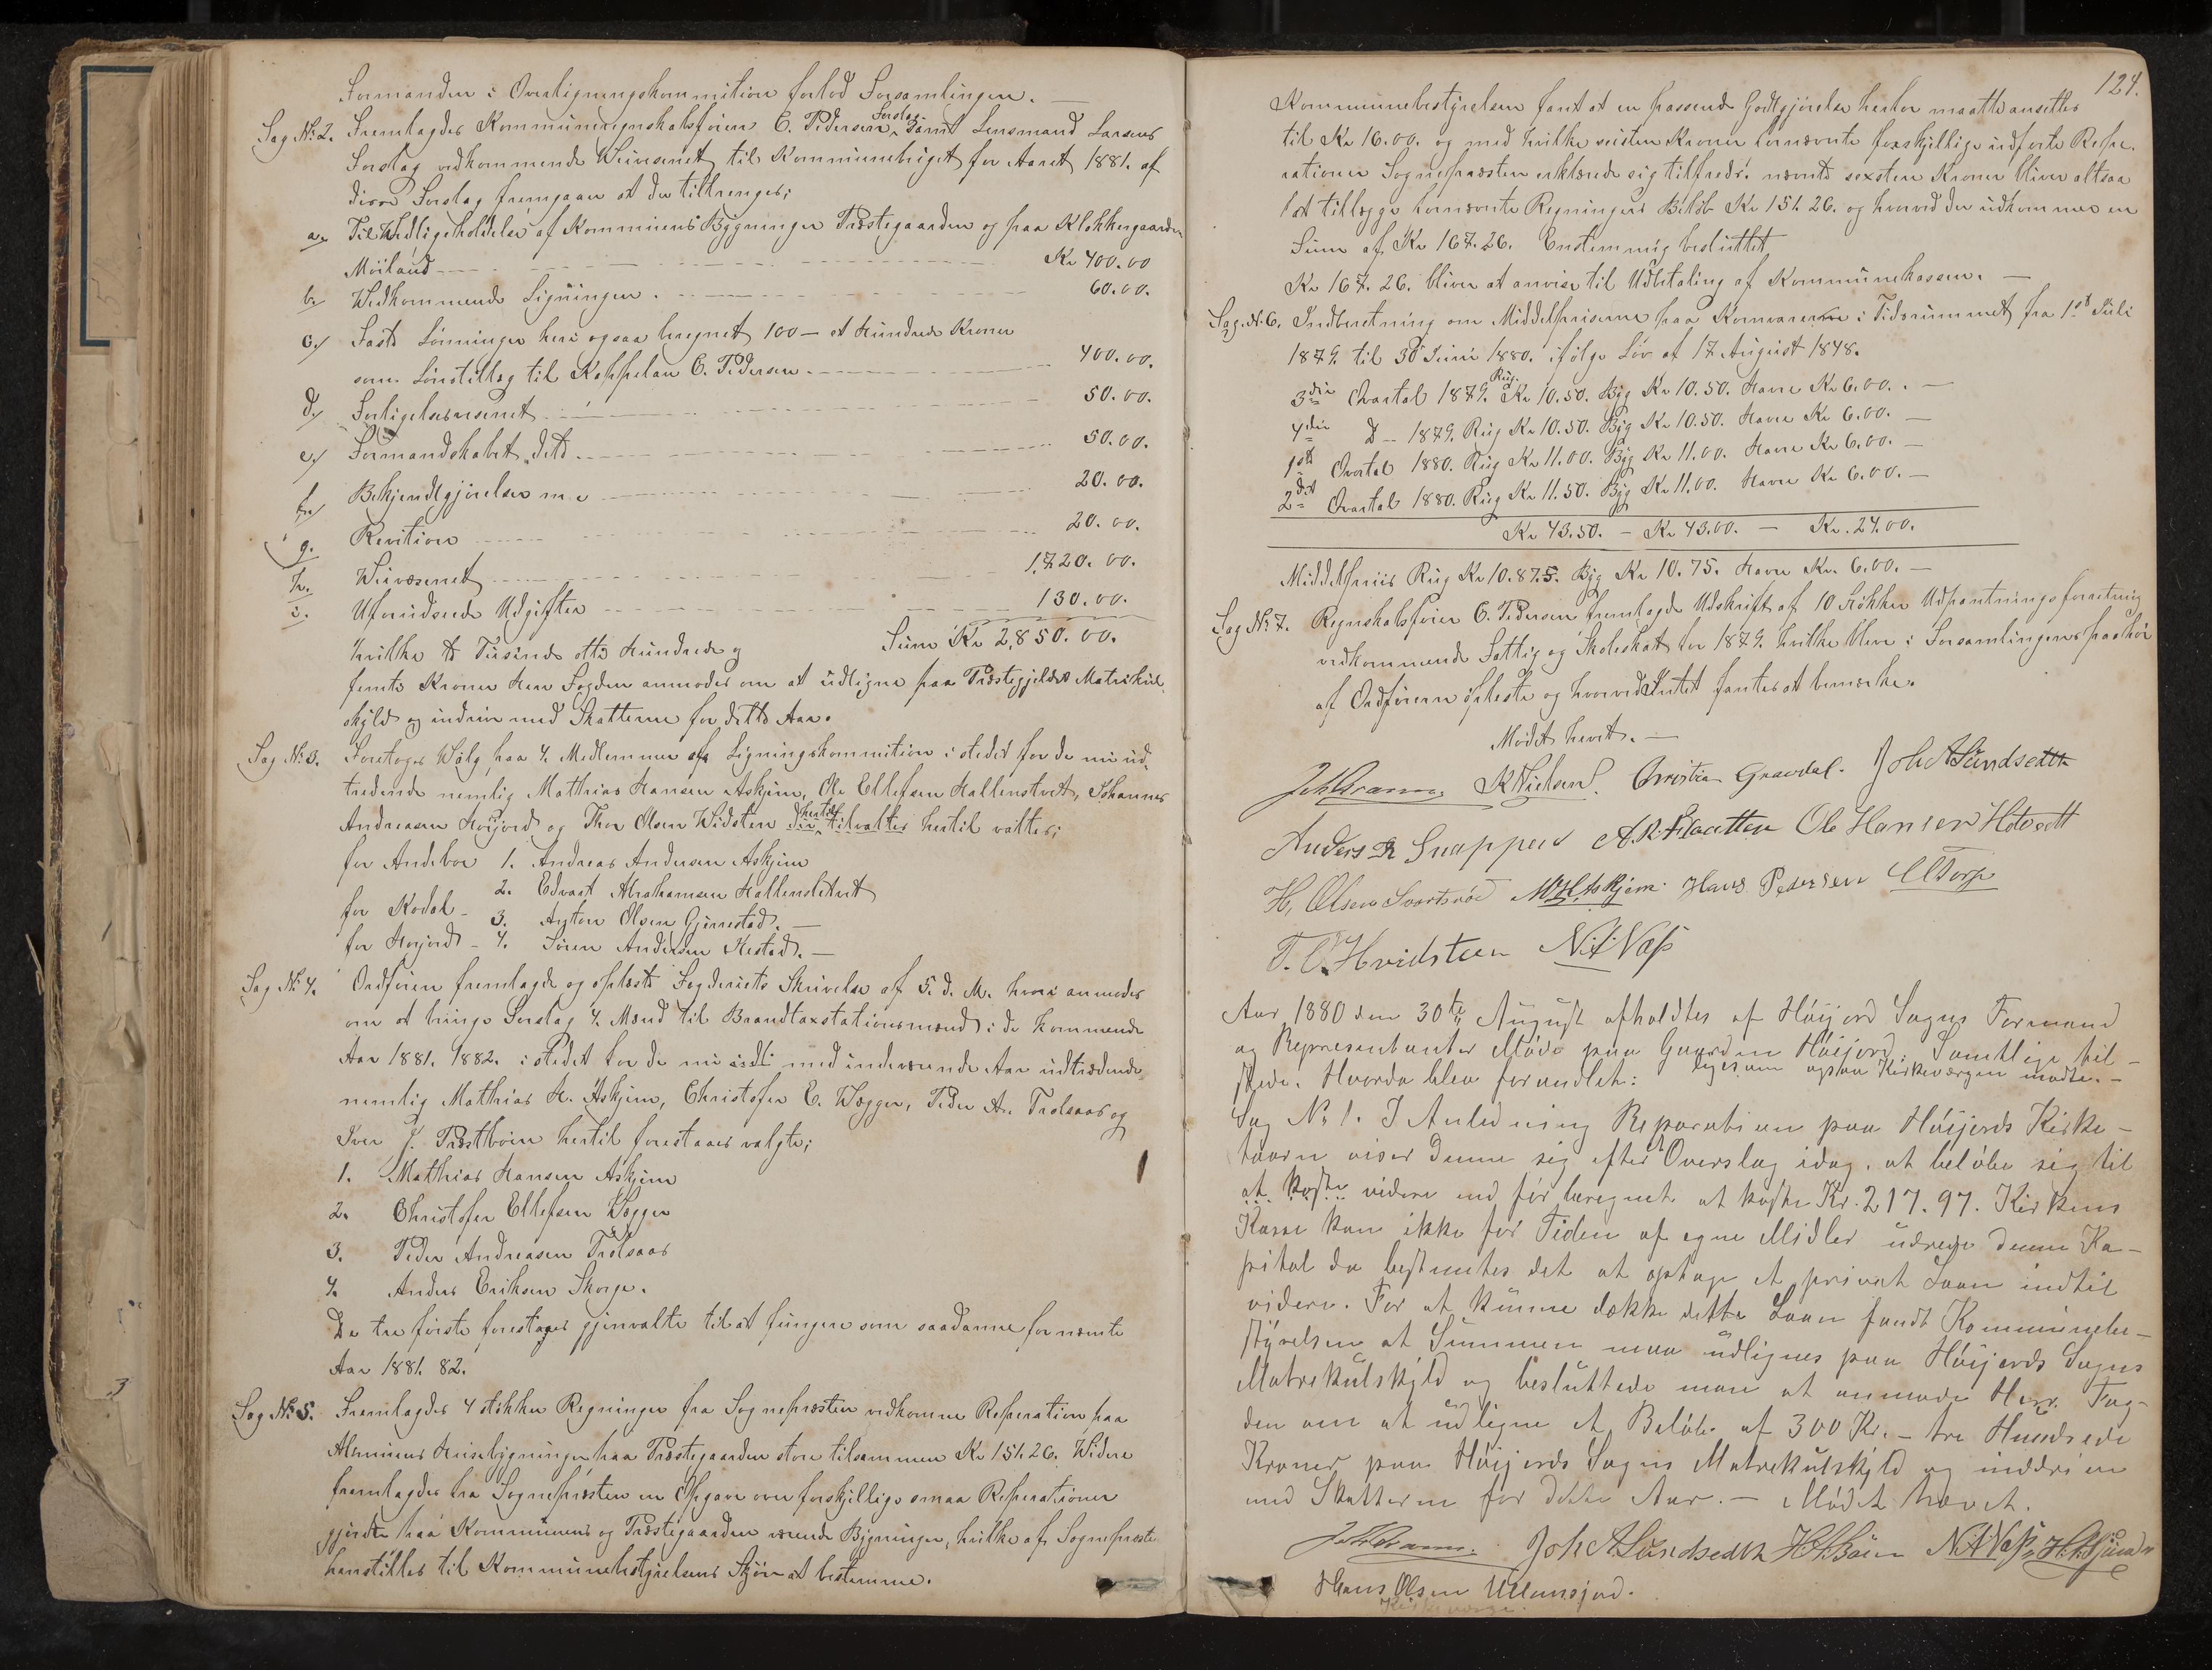 Formanden i Overligningskommition forlod Forsamlingen. —
Sag No 2. Fremlagdes Kommuneregnskabsfører C. Pedersen Forslag samt Lensmand Larsens
Forslag vedkommende Veivæsenet til Kommunebudget for Aaret 1881. af
disse Forslag fremgaar at der tiltrenges;
a. Til Vedligeholdelse af Kommunens Bygninger Præstegaarden og paa Klokkergaarden
Møiland Kr 400.00
b. Vedkommende Ligningen. 60.00.
c. Faste Lønninger heri ogsaa beregnet 100 – et Hundrede Kroner
som Lønstillæg til Kappelan C. Pedersen. 400.00.
d. Forligelsesvæsenet 50.00.
e. Formandskabet dito 50.00.
f. Bekjendtgjørelser m. v 20.00.
g. Revition 20.00.
h. Veivæsenet 1.720.00.
i. Uforudseede Udgifter 130.00.
hvilke to Tusinde otte Hundrede og Sum Kr 2,850.00.
femti Kroner Herr Fogden anmodes om at udligne paa Præstegjeldets Matrikul
skyld og inddrive med Skatterne for dette Aar.
Sag No 3. Foretoges Valg paa 4 Medlemmer af Ligningskommition i stedet for de nu ud-
tredende nemlig Mathias Hansen Askjem, Ole Ellefsen Hallenstvet, Johannes
Andreasen Høijord og Thor Olsen Hvidsten hertil valtes;
for Andebo 1. Andreas Andersen Askjem
2. Edvart Abrahamsen Hallenstvet
for Kodal – 3. Anton Olsen Gjerrestad. —
for Høijord – 4. Søren Andersen Hestad. —
Sag No 4. Ordføren fremlagde og oplæste Fogderiets Skrivelse af 5. d. M. hvori anmodes
om at bringe Forslag 4 Mænd til Brandtaxstationsmænd i de kommende
Aar 1881. 1882. i stedet for de nu med indeværende Aar udtrædende
nemlig Mathias H. Askjem, Christofer E. Vegger, Peder A. Trolsaas og
Iver J. Præstbøen hertil forestaaes valgte;
1. Mathias Hansen Askjem
2. Christofer Ellefsen Vegger
3. Peder Andreasen Trolsaas
4. Anders Eriksen Skorge.
De tre første foreslages gjenvalte til at fungere som saadanne for nevnte
Aar 1881. 82.
Sag No 5. Fremlagdes 4 Stykker Regninger fra Sognepræsten vedkomne Reperation paa
Almuens Husebygninger paa Præstegaarden store tilsammen Kr 151.26. Videre
fremlagdes fra Sognepræsten en Opgave over forskjellige smaa Reperationer
gjorte paa Kommunens og Præstegaarden værende Bygninger, hvilke af Sognepræsten
henstilles til Kommunebestyrelsens Skjøn at bestemme.
124.
Kommunebestyrelsen fant at en passende Godtgjørelse herfor maatte ansettes
til Kr 16.00. og med hvilke seisten Kroner fornevnte forskjellige udførte Repe-
rationer Sognepræsten erklærede sig tilfreds. nevnte sexsten Kroner bliver altsaa
at tillægge fornevnte Regningers Beløb Kr 151.26. og hvorved der udkommes en
Sum af Kr 167.26. Enstemmig besluttet
Kr 167.26. bliver at anvise til Udbetaling af Kommunekassen. —
Sag No 6. Indberetning om Middelpriserne paa Kornvarerne i Tidsrummet fra 1st Juli
1879. til 30 Juni 1880. ifølge Lov af 17 August 1848.
3die Qvartal 1879. Rug Kr 10.50. Byg Kr 10.50. Havre Kr 6.00. —
4die D – 1879. Rug Kr 10.50. Byg Kr 10.50. Havre Kr 6.00. —
1ste Qvartal 1880. Rug Kr 11.00. Byg Kr 11.00. Havre Kr 6.00. —
2det Qvartal 1880. Rug Kr 11.50. Byg Kr 11.00. Havre Kr 6.00. —
Kr 43.50. – Kr 43.00. – Kr. 24.00.
Middelpriis Rug Kr 10.87.5. Byg Kr 10.75. Havre Kr. 6.00. —
Sag No 7. Regnskabsfører C. Pedersen fremlagde Udskrift af 10 Stykker Udpantningsforretning
vedkommende Fattig og Skoleskat for 1879. hvilke blev i Forsamlingens paahør
af Ordføreren oplæste og hvorved Intet fantes at bemærke.
Mødet hævet. —
J. Gram. K Nielsen. Christian Gravdal. Joh A Sundsedth
Anders R Gnappers A. R. Flaatten Ole Hansen Hotvedt
H, Olsen Svartsrød M H Askjem. Hans Pedersen C Torp
T. O. Hvidsteen N. A. Vaß
Aar 1880 den 30te August afholdtes af Høijord Sogns Formænd
og Representanter Møde paa Gaarden Høijord. Samtlige til-
stede. Hvorda blev forandlet: ligesom ogsaa Kirkeværgen mødte. –
Sag No 1. I Anledning Reparation paa Høijords Kirke-
taarn viser denne sig efter Overslag idag, at beløbe sig til
at koste videre end før beregnet at koste Kr. 217.97. Kirkens
Kasse kan ikke for Tiden af egne Midler udrede denne Ka-
pital da bestemtes det at optage et privat Laan indtil
videre. For at kunne dække dette Laan fandt Kommunebe-
styrelsen at Summen maa udlignes paa Høijords Sogns
Matrekulskyld og besluttede man at anmode Herr. Fog-
den om at udligne et Beløb af 300 Kr. – tre Hundrede
Kroner paa Høijords Sogns Matrekulskyld og inddrive
med Skatterne for dette Aar. – Mødet hævet.
J. Gram. Joh A Sundsedth H A Bøen N A Vaß,
Hans Olsen Ullensjord.
Kirkeværge.